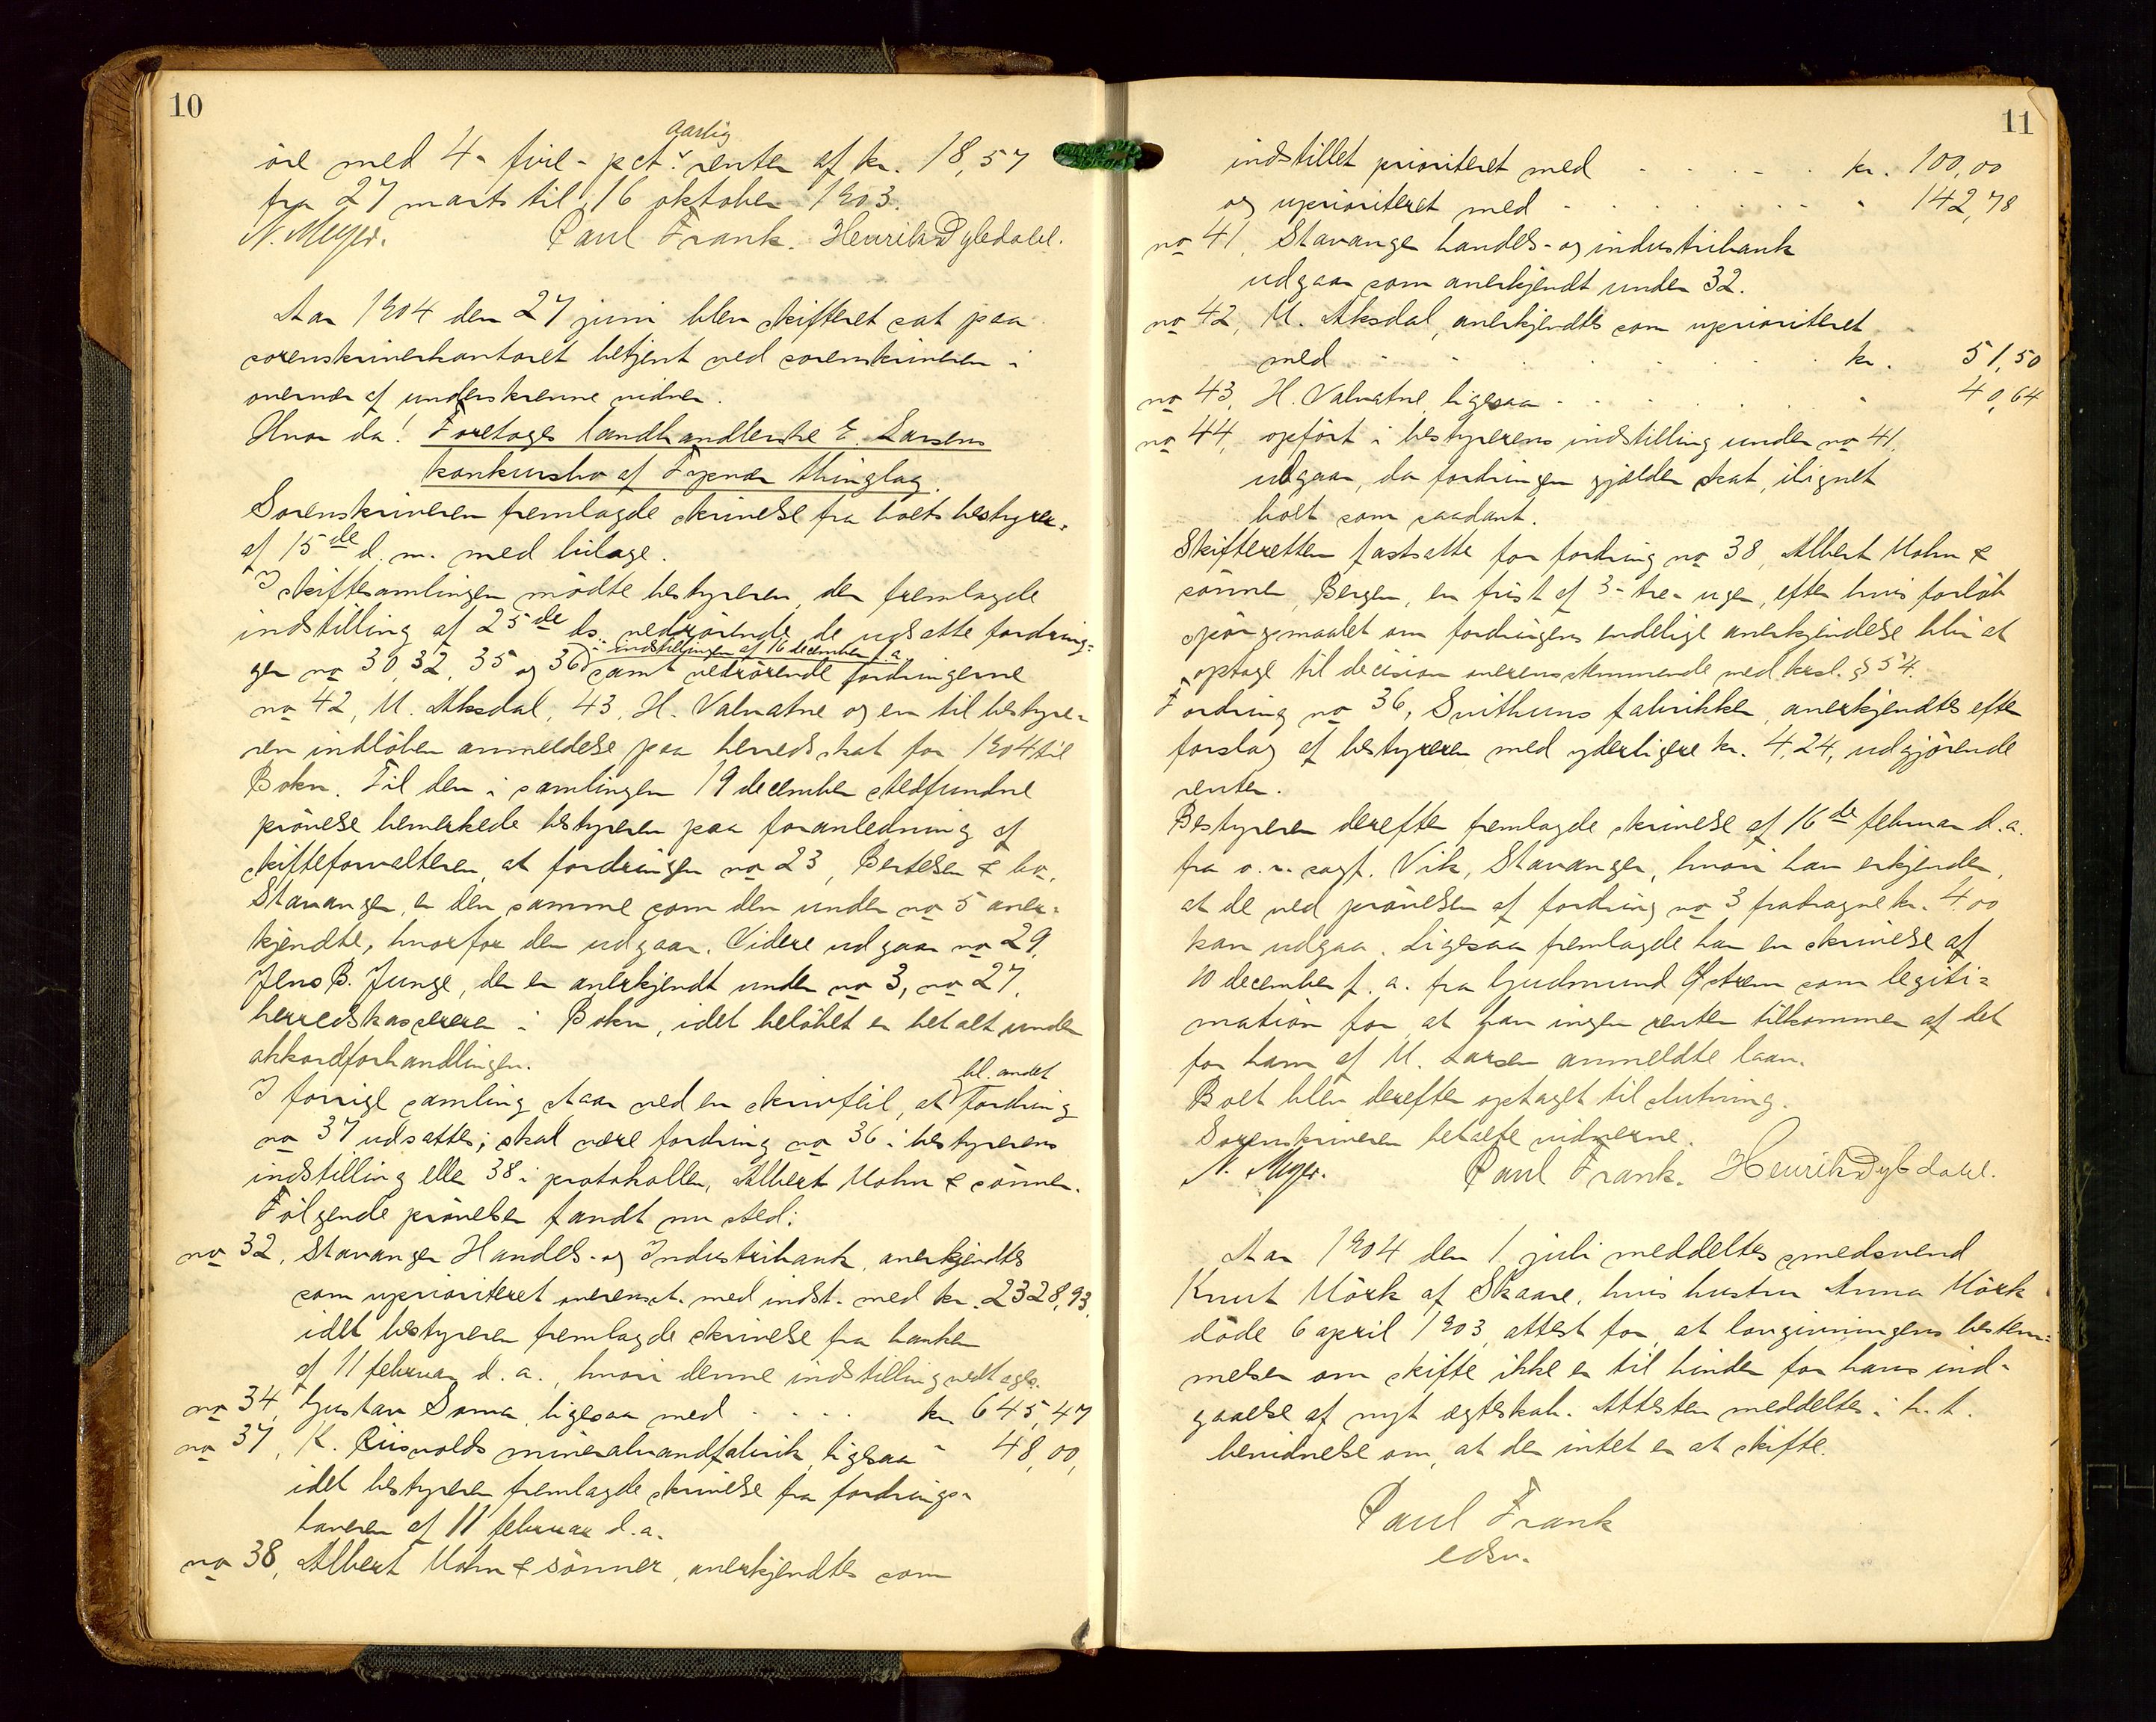 10
aarlig
öre med 4- fire- pct. rente af kr. 18,57
fra 27 marts til 16 oktober 1903.
N. Meyer. Paul Frank. Henrik Dybdahl.
Aar 1904 den 27 juni blev skifteret sat paa
sorenskriverkontoret betjent ved sorenskriveren i
overvær af underskrevne vidner.
Hvor da! Foretoges landhandlerske E. Larsens
konkursbo af Tysvær thinglag.
Sorenskriveren fremlagde skrivelse fra boets bestyrer
af 15de d. m. med bilage.
I skiftesamlingen mödte bestyreren, der fremlagde
indstilling af 25de ds. vedrörende de udsatte fordrin-
indstillingen af 16 december f. a.
ger no 30, 32, 35 og 36 samt vedrörende fordringerne
no 42, M. Aksdal, 43, H. Valvatne og en til bestyre-
ren indlöben anmeldelse paa herredskat for 1904 til
Bokn. Til den i samlingen 19 december stedfundne
prövelse bemerkede bestyreren paa foranledning af
skifteforvalteren, at fordringen no 23, Bertelsen & co.
Stavanger, er den samme som den under no 5 aner-
kjendte, hvorfor den udgaar. Videre udgaar no 29,
Jens B. Junge, der er anerkjendt under no 3, no 27,
herredskassereren i Bokn, idet belöbet er betalt under
akkordforhandlingen.
bl. andet
I forrige samling staar ved en skrivfeil, at fordring
no 37 udsattes; skal være fordring no 36 i bestyrerens
indstilling eller 38 i protokollen, Albert Mohn & sönner.
Fölgende prövelser fandt nu sted:
no 32, Stavanger Handels- og Industribank, anerkjendtes
som uprioriteret overenst. med indst. med kr. 2328,93,
idet bestyreren fremlagde skrivelse fra banken
af 11 februar d. a., hvori denne indstilling vedtages.
no 34, Gustav Soma, ligesaa med kr 645,47
no 37, K. Riisvolds mineralvandfabrik, ligesaa " 48,00,
idet bestyreren fremlagde skrivelse fra fordrings-
haveren af 11 februar d. a.
no 38, Albert Mohn & sönner, anerkjendtes som
11
indstillet prioriteret med kr. 100,00
og uprioriteret med " 142,78
no 41, Stavanger handels- og industribank
udgaar som anerkjendt under 32.
no 42, M. Aksdal, anerkjendtes som uprioriteret
med kr. 51,50
no 43, H. Valvatne, ligesaa " 40,64
no 44, opfört i bestyrerens indstilling under no 41,
udgaar, da fordringen gjælder skat, ilignet
boet som saadant.
Skifteretten fastsatte for fordring no 38, Albert Mohn &
sönner, Bergen, en frist af 3- tre- uger, efter hvis forlöb
spörgsmaalet om fordringens endelige anerkjendelse blir at
optage til decision overensstemmende med krsl. § 54.
Fordring no 36, Svithuns fabrikker, anerkjendtes efter
forslag af bestyreren med yderligere kr. 4,24, udgjörende
renter.
Bestyreren derefter fremlagde skrivelse af 16de februar d. a.
fra o. r. sagf. Vik, Stavanger, hvori han erkjender,
at de ved prövelsen af fordring no 3 fradragne kr. 4.00
kan udgaa. Ligesaa fremlagde han en skrivelse af
10 december f. a. fra Gudmund Östrem som legiti-
mation for, at han ingen renter tilkommer af det
for ham af M. Larsen anmeldte laan.
Boet blev derefter optaget til slutning.
Sorenskriveren betalte vidnerne.
N. Meyer. Paul Frank. Henrik Dybdahl.
Aar 1904 den 1 juli meddeltes smedsvend
Knut Mörk af Skaare, hvis hustru Anna Mörk
döde 6 april 1903, attest for, at lovgivningens bestem-
melser om skifte ikke er til hinder for hans ind-
gaaelse af nyt ægteskab. Attesten meddeltes i h. t.
bevidnelse om, at der intet er at skifte.
Paul Frank
edsv.